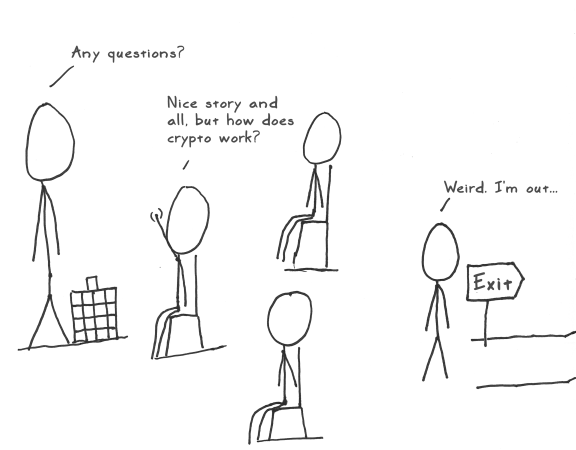 Any questions?
Nice story and
all, but how does
crypto work?
Weird. I'm out...
Exit